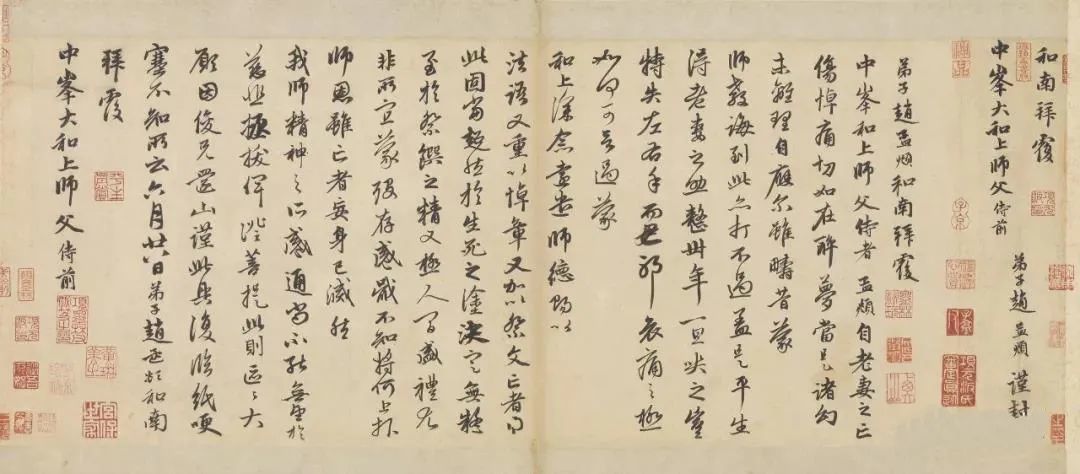 和南拜覆
中峯大和上師父侍前
弟子趙孟頫謹封
弟子趙孟頫和南拜覆
中峯和上師父侍者孟頫自老妻之亡
傷悼痛切如在醉夢當是諸幻
未離理自應尔雖疇昔蒙
師教誨到此亦打不過蓋是平生
得老妻之助整卅年一旦哭之豈
特失左右手而已耶哀痛之極
如何可言過蒙
和上深念遠遣師德賜以
法語又重以悼章又加以祭文亡者得
此固當超然於生死之塗決定無疑
至於祭饌之精又極人間盛禮尤
非所宜蒙殁存感戴不知將何上報
師恩雖亡者妄身已滅然
我師精神之所感通尚不能無望於
慈悲拯拔俾證菩提此則區區大
願因俊兄還山謹此具復臨紙哽
塞不知所云六月廿八日弟子趙孟頫和南
拜覆
中峯大和上師父侍前